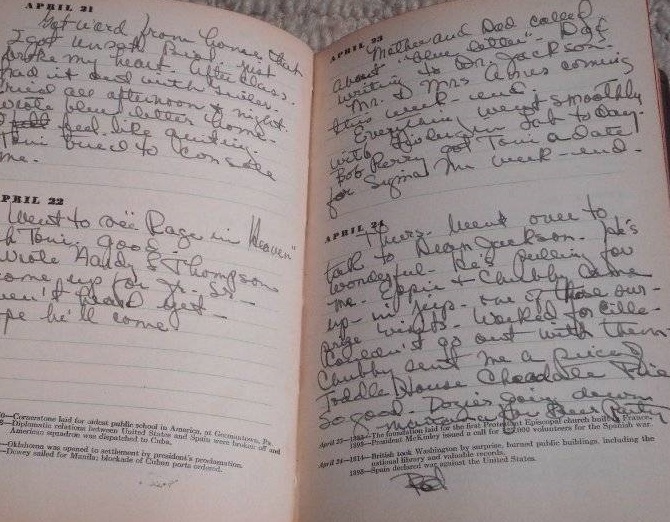 APRIL 21
Got word from Gones that
I got unsat Prof. Just
broke my heart. After class
had it out with
cried all afternoon & night.
wrote blue letter home.
I feel like quiting.
Toni tried to console
me.
APRIL 22
Went to see "Rage in Heaven"
Toni. good.
Wrote Haddy S Thompson
come up for Jr. Sr -
haven't heard yet -
hope he'll come
—Cornerstone laid for oldest public school in America, at Germantown, Pa.
—Diplomatic relations between United States and Spain were broken off and
American squadron was dispatched to Cuba.
—Oklahoma was opened to settlement by president's proclamation.
—Dewey sailed for Manila; blockade of Cuban ports ordered.
APRIL 23
Mother and Dad called
about "blue letter". Dad
writing to Dr. Jackson.
Mr. & Mrs Amus coming
this week-end.
Everything went smoothly
with Lab to day.
Bob Perry got Toni a date
for Sigma Nu week-end.
APRIL 24
Thurs. Went over to
talk to Dean Jackson. He's
wonderful. He's pulling for
me. Eppie & Chubby came
up - in jip. one of those sur-
prise visits. Worked for
Couldn't go out with them
Chubby sent me a piece
Toddle House Chocolate Pie
so good. going down
for Beer Party
April 23—1833—The foundation laid for the first Protestant Episcopal church built in France.
1898—President McKinley issued a call for 125,000 volunteers for the Spanish war.
April 24—1814—British took Washington by surprise, burned public buildings, including the
national library and valuable records.
1898—Spain declared war against the United States.